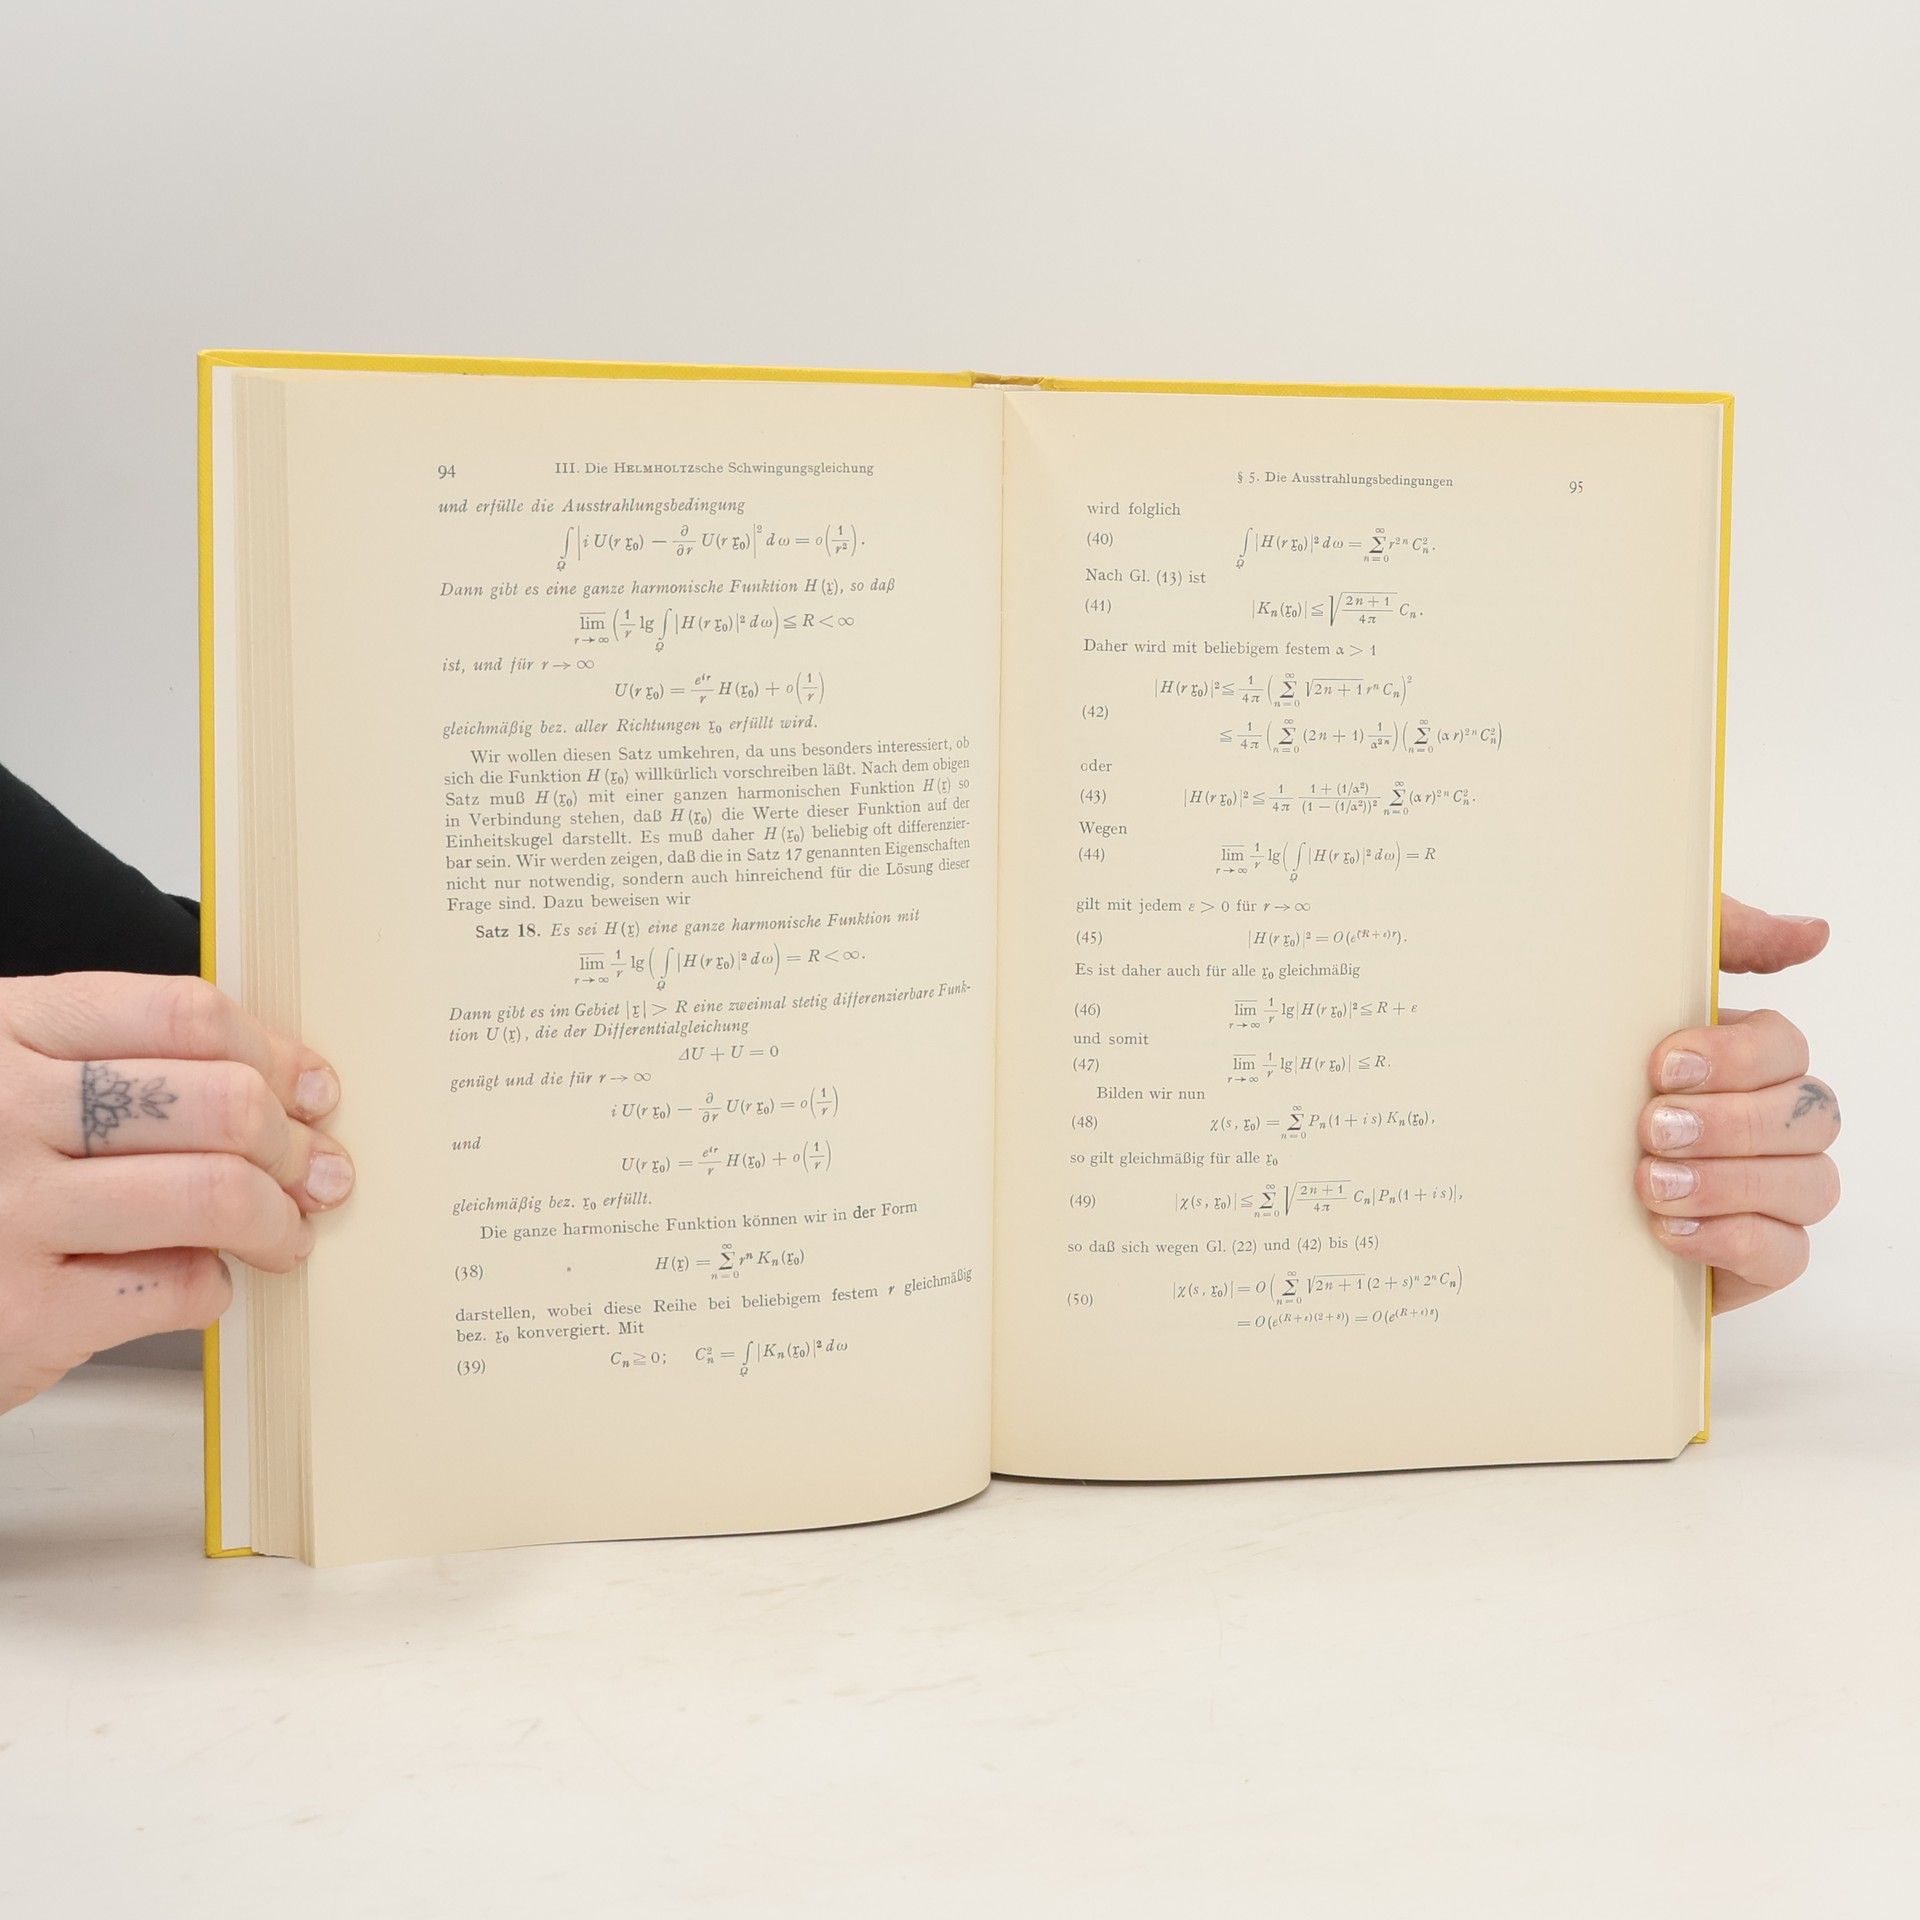 94 III. Die HELMHOLTZsche Schwingungsgleichung
und erfülle die Ausstrahlungsbedingung
∫_Ω |i U(r 𝔵₀) − ∂/∂r U(r 𝔵₀)|² dω = o(1/r²).
Dann gibt es eine ganze harmonische Funktion H(𝔵), so daß
\overline{lim}_{r→∞} (1/r lg ∫_Ω |H(r 𝔵₀)|² dω) ≦ R < ∞
ist, und für r → ∞
U(r 𝔵₀) = e^{ir}/r H(𝔵₀) + o(1/r)
gleichmäßig bez. aller Richtungen 𝔵₀ erfüllt wird.
Wir wollen diesen Satz umkehren, da uns besonders interessiert, ob
sich die Funktion H(𝔵₀) willkürlich vorschreiben läßt. Nach dem obigen
Satz muß H(𝔵₀) mit einer ganzen harmonischen Funktion H(𝔵) so
in Verbindung stehen, daß H(𝔵₀) die Werte dieser Funktion auf der
Einheitskugel darstellt. Es muß daher H(𝔵₀) beliebig oft differenzier-
bar sein. Wir werden zeigen, daß die in Satz 17 genannten Eigenschaften
nicht nur notwendig, sondern auch hinreichend für die Lösung dieser
Frage sind. Dazu beweisen wir
Satz 18. Es sei H(𝔵) eine ganze harmonische Funktion mit
\overline{lim}_{r→∞} 1/r lg(∫_Ω |H(r 𝔵₀)|² dω) = R < ∞.
Dann gibt es im Gebiet |𝔵| > R eine zweimal stetig differenzierbare Funk-
tion U(𝔵), die der Differentialgleichung
ΔU + U = 0
genügt und die für r → ∞
i U(r 𝔵₀) − ∂/∂r U(r 𝔵₀) = o(1/r)
und
U(r 𝔵₀) = e^{ir}/r H(𝔵₀) + o(1/r)
gleichmäßig bez. 𝔵₀ erfüllt.
Die ganze harmonische Funktion können wir in der Form
(38) H(𝔵) = ∑_{n=0}^∞ rⁿ Kₙ(𝔵₀)
darstellen, wobei diese Reihe bei beliebigem festem r gleichmäßig
bez. 𝔵₀ konvergiert. Mit
(39) Cₙ ≧ 0; Cₙ² = ∫_Ω |Kₙ(𝔵₀)|² dω
§ 5. Die Ausstrahlungsbedingungen 95
wird folglich
(40) ∫_Ω |H(r 𝔵₀)|² dω = ∑_{n=0}^∞ r^{2n} Cₙ².
Nach Gl. (13) ist
(41) |Kₙ(𝔵₀)| ≦ √((2n+1)/(4π)) Cₙ.
Daher wird mit beliebigem festem α > 1
|H(r 𝔵₀)|² ≦ 1/(4π) (∑_{n=0}^∞ √(2n+1) rⁿ Cₙ)²
(42)
≦ 1/(4π) (∑_{n=0}^∞ (2n+1) 1/α^{2n}) (∑_{n=0}^∞ (α r)^{2n} Cₙ²)
oder
(43) |H(r 𝔵₀)|² ≦ 1/(4π) (1+(1/α²))/((1−(1/α²))²) ∑_{n=0}^∞ (α r)^{2n} Cₙ².
Wegen
(44) \overline{lim}_{r→∞} 1/r lg(∫_Ω |H(r 𝔵₀)|² dω) = R
gilt mit jedem ε > 0 für r → ∞
(45) |H(r 𝔵₀)|² = O(e^{(R+ε)r}).
Es ist daher auch für alle 𝔵₀ gleichmäßig
(46) \overline{lim}_{r→∞} 1/r lg|H(r 𝔵₀)|² ≦ R + ε
und somit
(47) \overline{lim}_{r→∞} 1/r lg|H(r 𝔵₀)| ≦ R.
Bilden wir nun
(48) χ(s, 𝔵₀) = ∑_{n=0}^∞ Pₙ(1 + i s) Kₙ(𝔵₀),
so gilt gleichmäßig für alle 𝔵₀
(49) |χ(s, 𝔵₀)| ≦ ∑_{n=0}^∞ √((2n+1)/(4π)) Cₙ |Pₙ(1 + i s)|,
so daß sich wegen Gl. (22) und (42) bis (45)
|χ(s, 𝔵₀)| = O(∑_{n=0}^∞ √(2n+1) (2 + s)ⁿ 2ⁿ Cₙ)
(50)
= O(e^{(R+ε)(2+s)}) = O(e^{(R+ε)s})